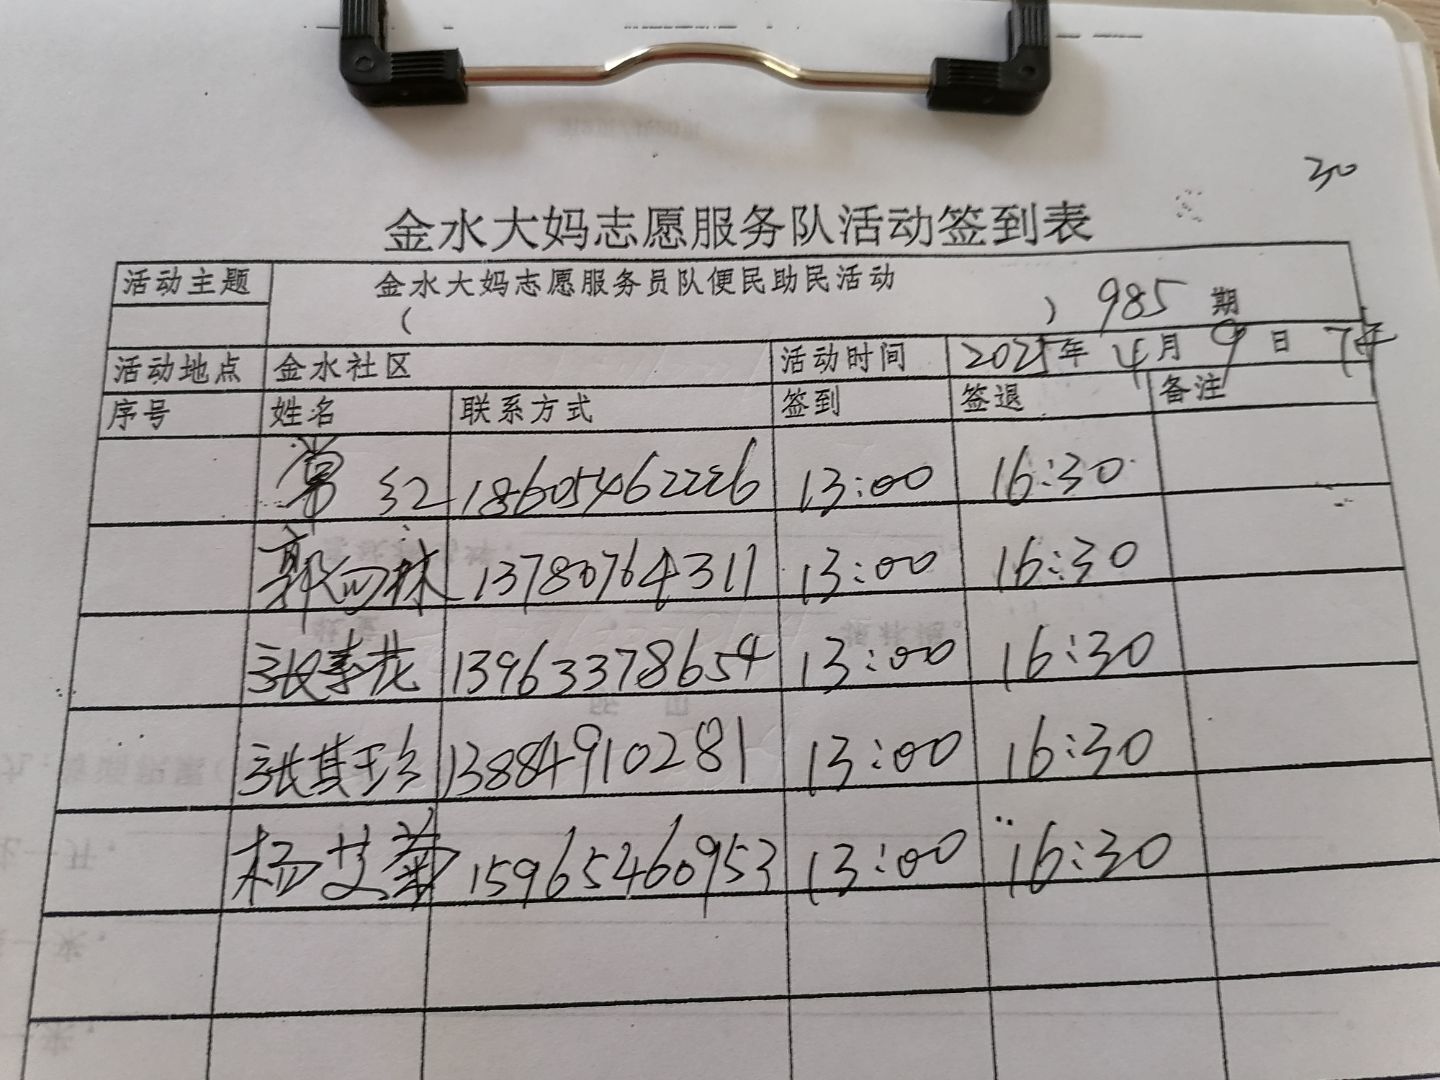 30
金水大妈志愿服务队活动签到表
活动主题 金水大妈志愿服务员队便民助民活动
( ) 985 期
活动地点 金水社区 活动时间 2025年 4月 9日 下午
序号 姓名 联系方式 签到 签退 备注
常红 18605462226 13:00 16:30
郭四林 13780764311 13:00 16:30
张春花 13963378654 13:00 16:30
张其珍 13884910281 13:00 16:30
杨艾菊 15965460953 13:00 16:30